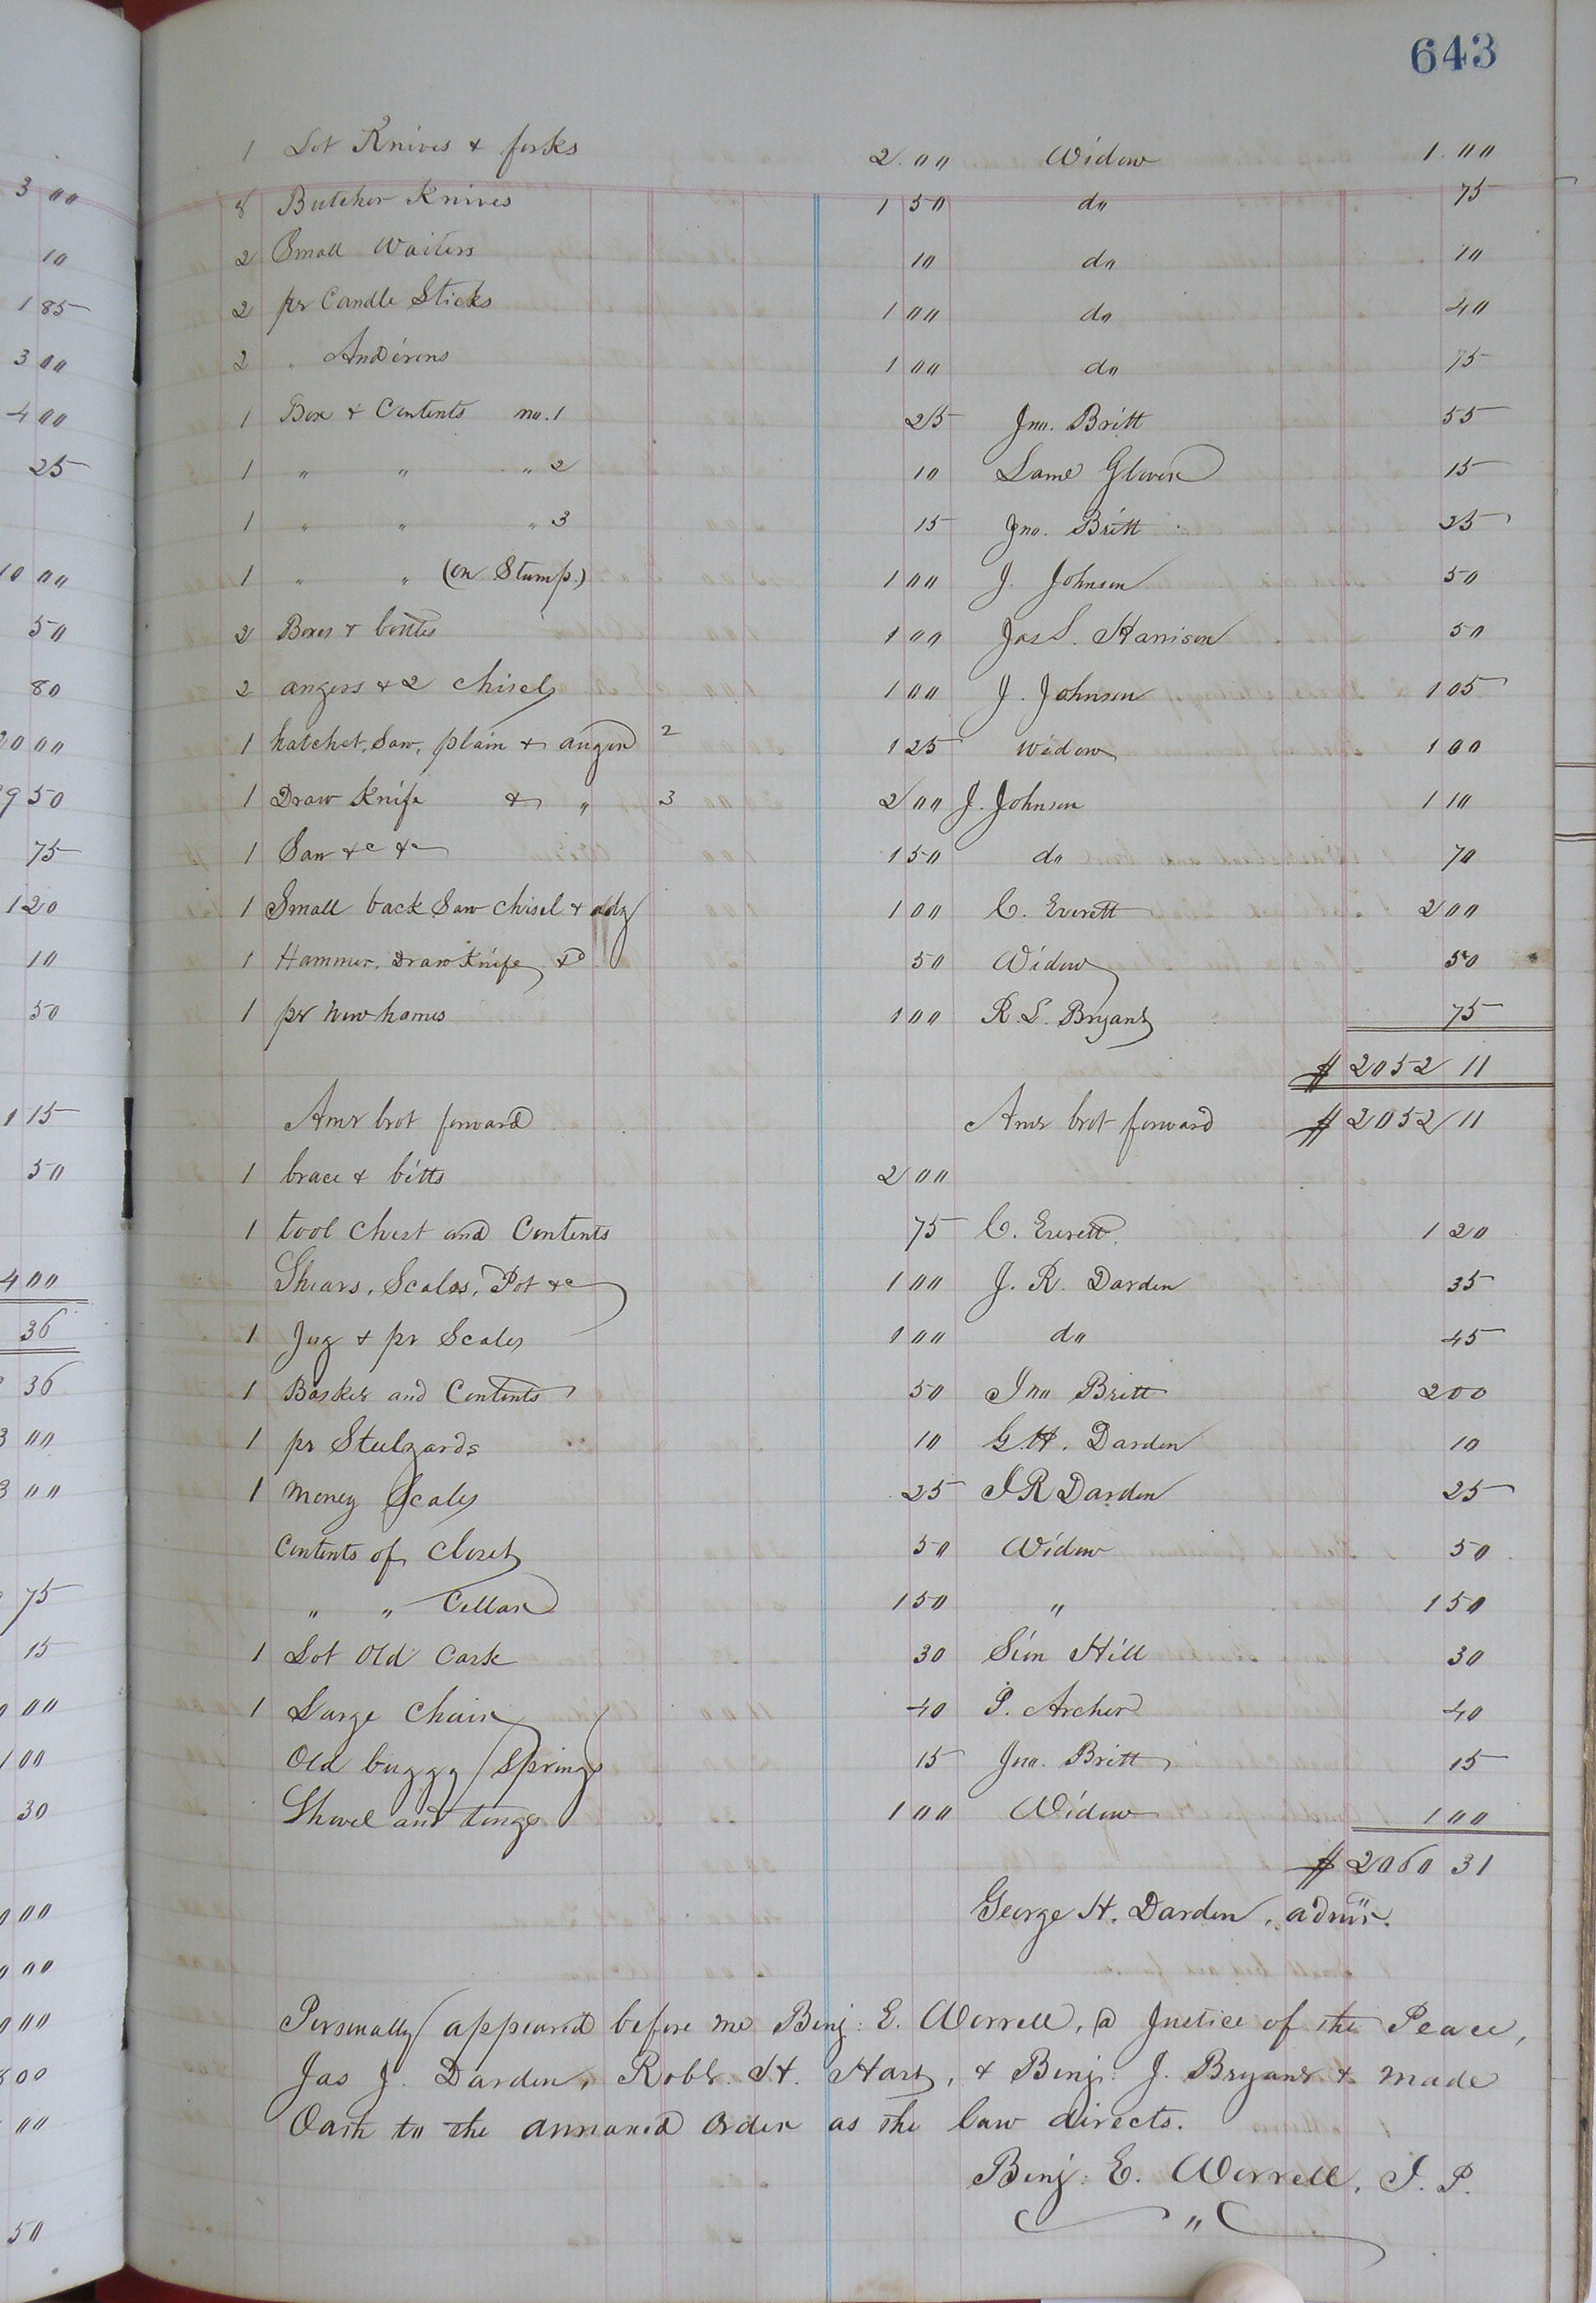 643
1 Lot Knives & forks 2.00 Widow 1.00
8 Butcher Knives 1 50 do 75
2 Small Waiters 10 do 10
2 pr Candle Sticks 1 00 do 40
2 " Andirons 1 00 do 75
1 Box & Contents no. 1 25 Jno. Britt 55
1 " " " 2 10 Lame Glover 15
1 " " " 3 15 Jno. Britt 25
1 " " (on Stump.) 1 00 J. Johnson 50
2 Boxes & bottles 1 00 Jas S. Harrison 50
2 augers & 2 chisels 1 00 J. Johnson 1 05
1 hatchet, Saw, plain & auger 2 1 25 Widow 1 00
1 Draw Knife & " 3 2 00 J. Johnson 1 10
1 Saw &c &c 1 50 do 70
1 Small back Saw chisel & adz 1 00 C. Everett 2 00
1 Hammer, Draw Knife &c 50 Widow 50
1 pr new hames 1 00 R. L. Bryant 75
$ 2052 11
Amt brot forward Amt brot forward $ 2052 11
1 brace & bitts 2 00
1 tool chest and Contents 75 C. Everett 1 20
Shears, Scales, Pot &c 1 00 J. R. Darden 35
1 Jug & pr Scales 1 00 do 45
1 Basket and Contents 50 Jno Britt 2 00
1 pr Steelyards 10 G. H. Darden 10
1 Money Scales 25 J R Darden 25
Contents of Closet 50 Widow 50
" " Cellar 1 50 " 1 50
1 Lot Old Cask 30 Sim Hill 30
1 Large Chair 40 P. Archer 40
Old buggy Springs 15 Jno. Britt 15
Shovel and tongs 1 00 Widow 1 00
$ 2060 31
George H. Darden, admr.
Personally appeared before me Benj: E. Worrell, a Justice of the Peace,
Jas J. Darden, Robt. H. Hart, & Benj: J. Bryant & made
Oath to the annexed Order as the law directs.
Benj: E. Worrell, J. P.
3 00
10
1 85
3 00
4 00
25
10 00
50
80
00
9 50
75
1 20
10
50
15
50
4 00
36
36
00
00
75
15
00
00
30
00
00
00
00
00
50